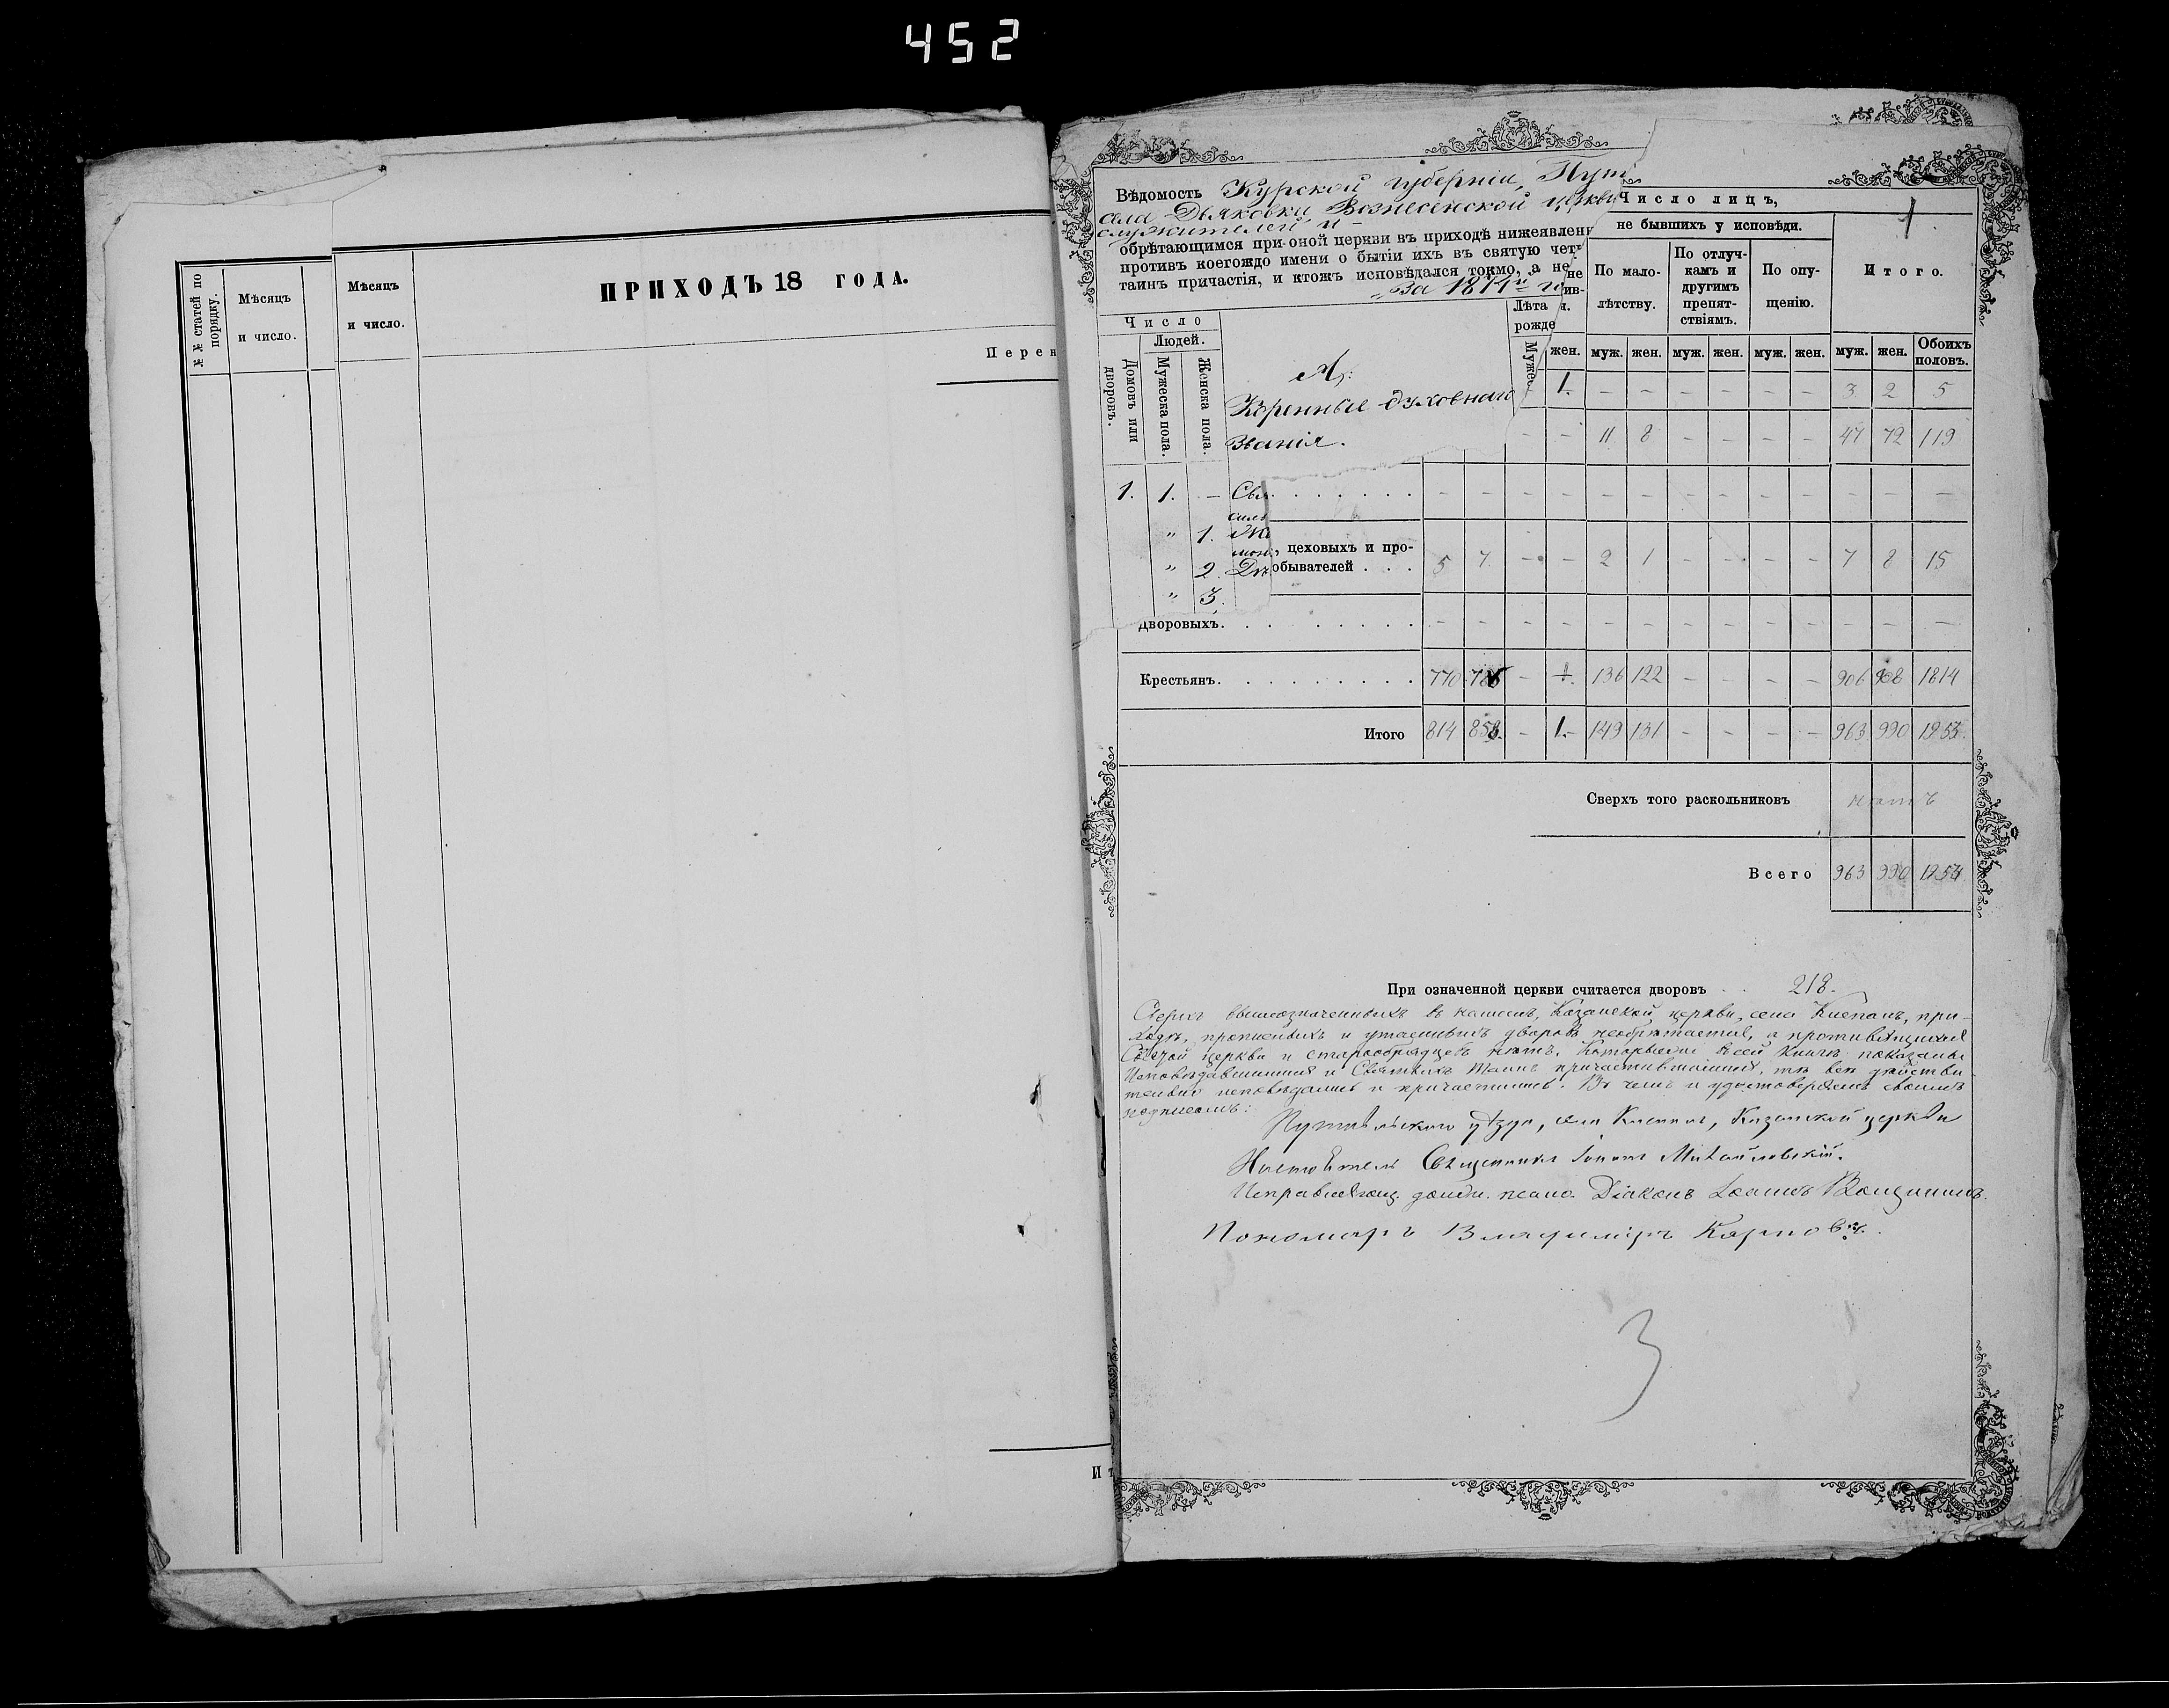 452
№ № статей по порядку.
Мѣсяцъ и число.
Мѣсяцъ и число.
ПРИХОДЪ 18 ГОДА.
Перен
Ит
Вѣдомость Курской губерніи, Пут
села Дьяковки Вознесенской церкви
служителей и
обрѣтающимся при оной церкви въ приходѣ нижеявлен
противъ коегождо имени о бытіи ихъ въ святую чет
таинъ причастія, и ктожъ исповѣдался токмо, а не
За 18
Число
Людей.
Домовъ или дворовъ.
Мужеска пола.
Женска пола.
А.
Коренные духовнаго
званія.
Лѣта
рожде
Мужес
1. 1. – Свя
силь
" 1. Же
" 2. Дѣ
" 3.
Число лицъ,
1
не бывшихъ у исповѣди.
По мало-
лѣтству.
По отлуч-
камъ и
другимъ
препят-
ствіямъ.
По опу-
щенію.
Итого.
жен. муж. жен. муж. жен. муж. жен. муж. жен. Обоихъ половъ.
1. – – – – – – 3 2 5
– – 11 8 – – – – 47 72 119
– – – – – – – – – – – – –
цеховыхъ и про-
обывателей . . . 5 7 – – 2 1 – – – – 7 8 15
Дворовыхъ. – – – – – – – – – – – – –
Крестьянъ. 770 786 – 1. 136 122 – – – – 906 908 1814
Итого 814 858. – 1. 149 131 – – – – 963 990 1953.
Сверхъ того раскольниковъ нѣтъ
Всего 963 990 1953
При означенной церкви считается дворовъ 218.
Сверхъ вышеозначенныхъ въ нашемъ, Казанской церкви, села Князпанъ, при-
ходѣ, прописныхъ и утаенныхъ дворовъ необрѣтается, а противящихся
Святой церкви и старообрядцевъ нѣтъ. Которыеже въ сей книгѣ показаны
Исповѣдавшимися и Святыхъ Таинъ причастившимися, тѣ всѣ дѣйстви-
тельно исповѣдались и причастились. Въ чемъ и удостовѣряемъ своимъ
подписомъ:
Путивльскаго уѣзда, села Казанской церкви
Настоятель Священникъ Іоаннъ Михайловскій.
Исправляющ. должн. псало. Діаконъ Іоаннъ
Пономарь Владиміръ Карповъ.
3